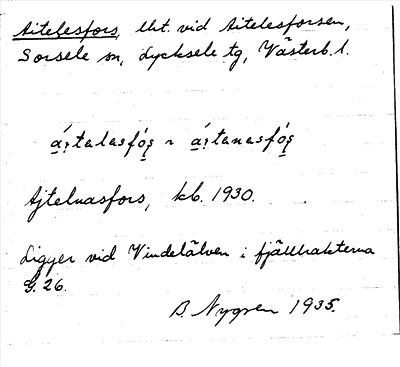 Aitelesfors, lht. vid Aitelesforsen,
Sorsele sn, Lycksele tg, Västerb. l.
a̱i̯talasfó̱ș ~ á̱i̯tanasfó̱ș
Ajtelnasfors, kb. 1930.
Ligger vid Vindelälven i fjälltrakterna
G. 26.
B. Nygren 1935.